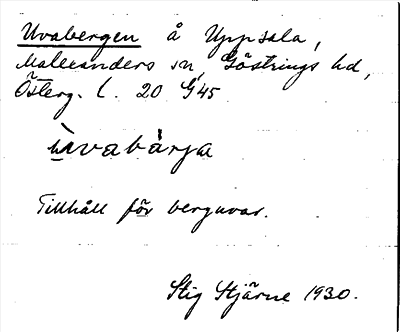 Uvabergen å Uppsala,
Malexanders sn, Göstrings hd,
Österg. l. 20 G45
ùvabärja
Tillhåll för berguvar.
Stig Stjärne 1930.